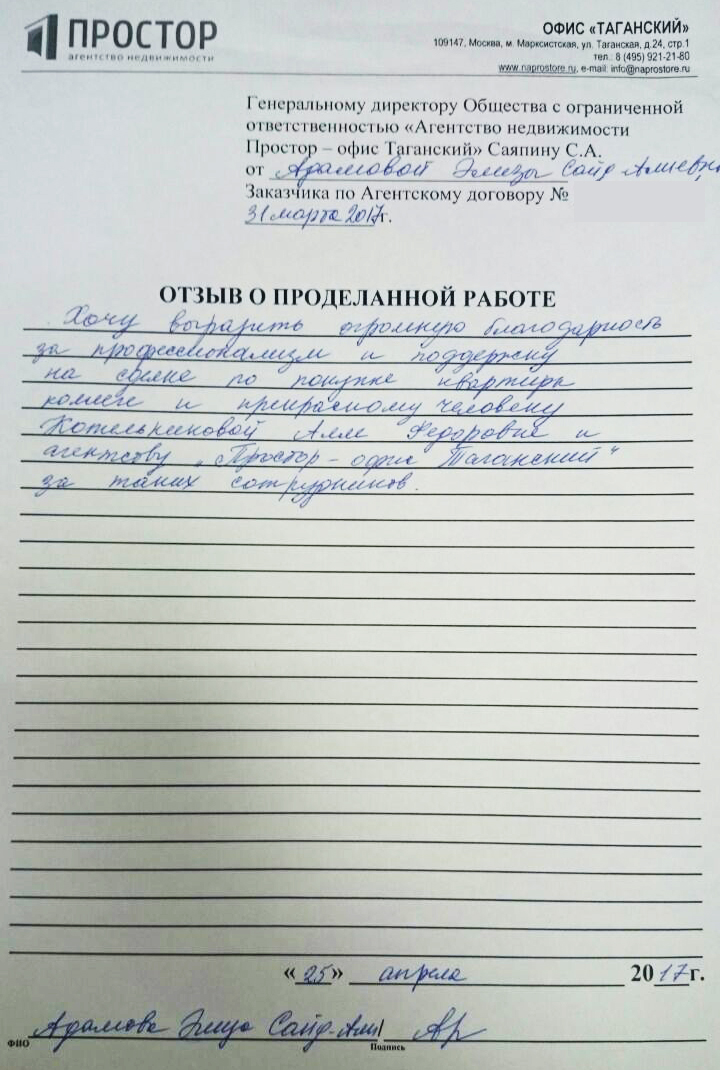 ПРОСТОР
агентство недвижимости
ОФИС «ТАГАНСКИЙ»
109147, Москва, м. Марксистская, ул. Таганская, д.24, стр.1
тел.: 8 (495) 921-21-80
www.naprostore.ru, e-mail: info@naprostore.ru
Генеральному директору Общества с ограниченной
ответственностью «Агентство недвижимости
Простор – офис Таганский» Саяпину С.А.
от Адамовой Элизы Сайд-Алиевны
Заказчика по Агентскому договору №
31 марта 2017г.
ОТЗЫВ О ПРОДЕЛАННОЙ РАБОТЕ
Хочу выразить огромную благодарность
за профессионализм и поддержку
на сделке по покупке квартиры
коллеге и прекрасному человеку
Котельниковой Алле Федоровне и
агентству „Простор – офис Таганский"
за таких сотрудников.
«25» апреля 2017г.
Адамова Элиза Сайд-Али/
ФИО Подпись